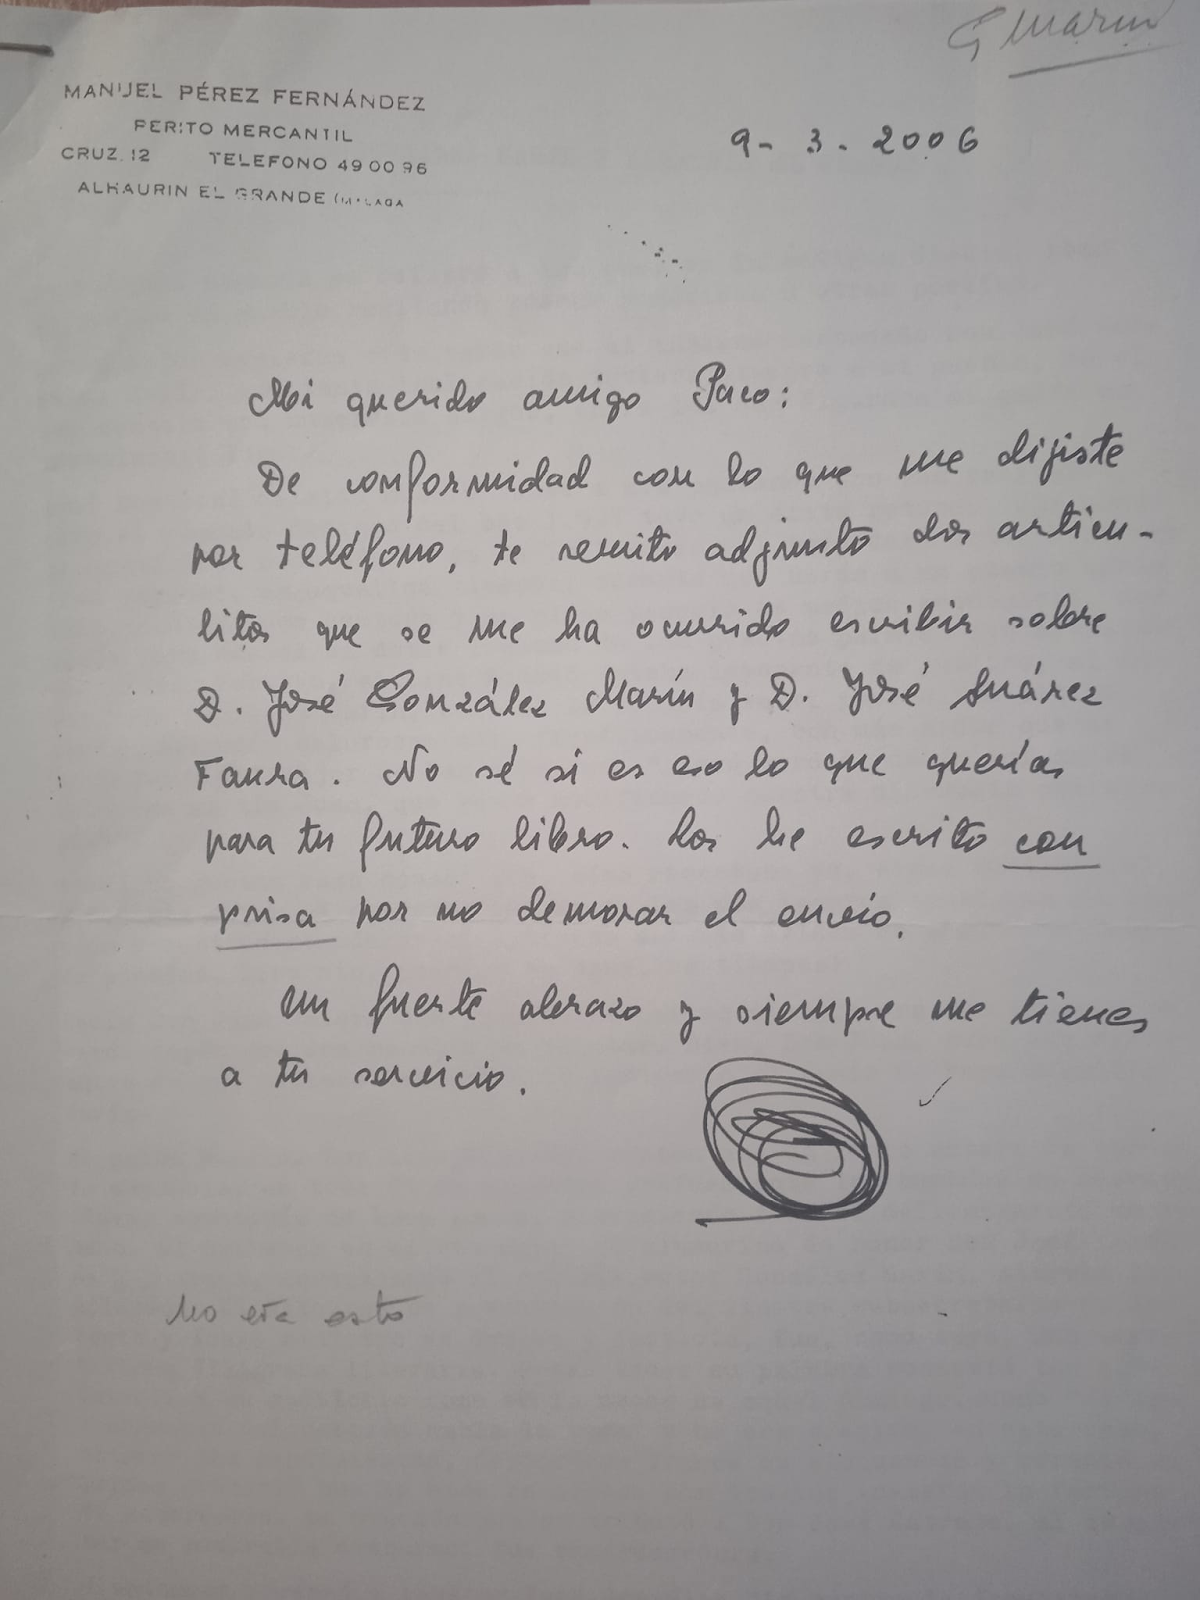 G Marin
MANUEL PÉREZ FERNÁNDEZ
PERITO MERCANTIL
CRUZ, 12 TELEFONO 49 00 96
ALHAURIN EL GRANDE (MALAGA
9 - 3 - 2006
Mi querido amigo Paco:
De conformidad con lo que me dijiste
por teléfono, te remito adjunto dos artícu-
litos que se me ha ocurrido escribir sobre
D. José González Marín y D. José Suárez
Faura. No sé si es eso lo que querías
para tu futuro libro. Los he escrito con
prisa por no demorar el envío.
Un fuerte abrazo y siempre me tienes
a tu servicio.
No era esto